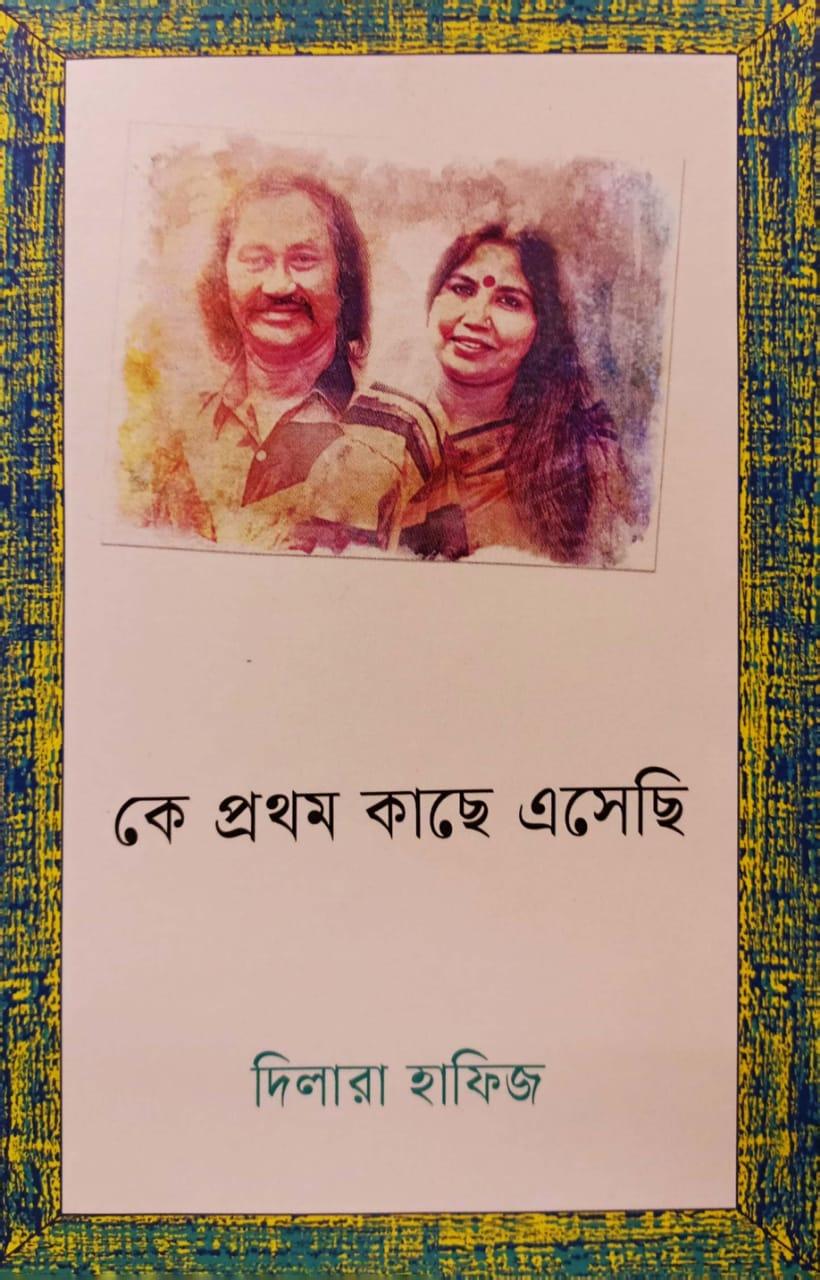 কে প্রথম কাছে এসেছি
দিলারা হাফিজ